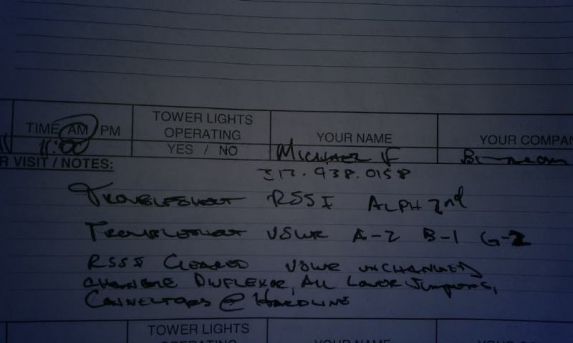 TIME AM PM
11:00
TOWER LIGHTS
OPERATING
YES / NO
YOUR NAME
Michael F
317.938.0158
YOUR COMPAN
R VISIT / NOTES:
Troubleshoot RSSI Alph 2nd
Troubleshoot VSWR A-2 B-1 G-2
RSSI Cleared VSWR unchanged
Change Duplexer, All Lower Jumpers,
Connectors @ Hardline
TOWER LIGHTS
OPERATING
YOUR NAME
YOUR COMPAN